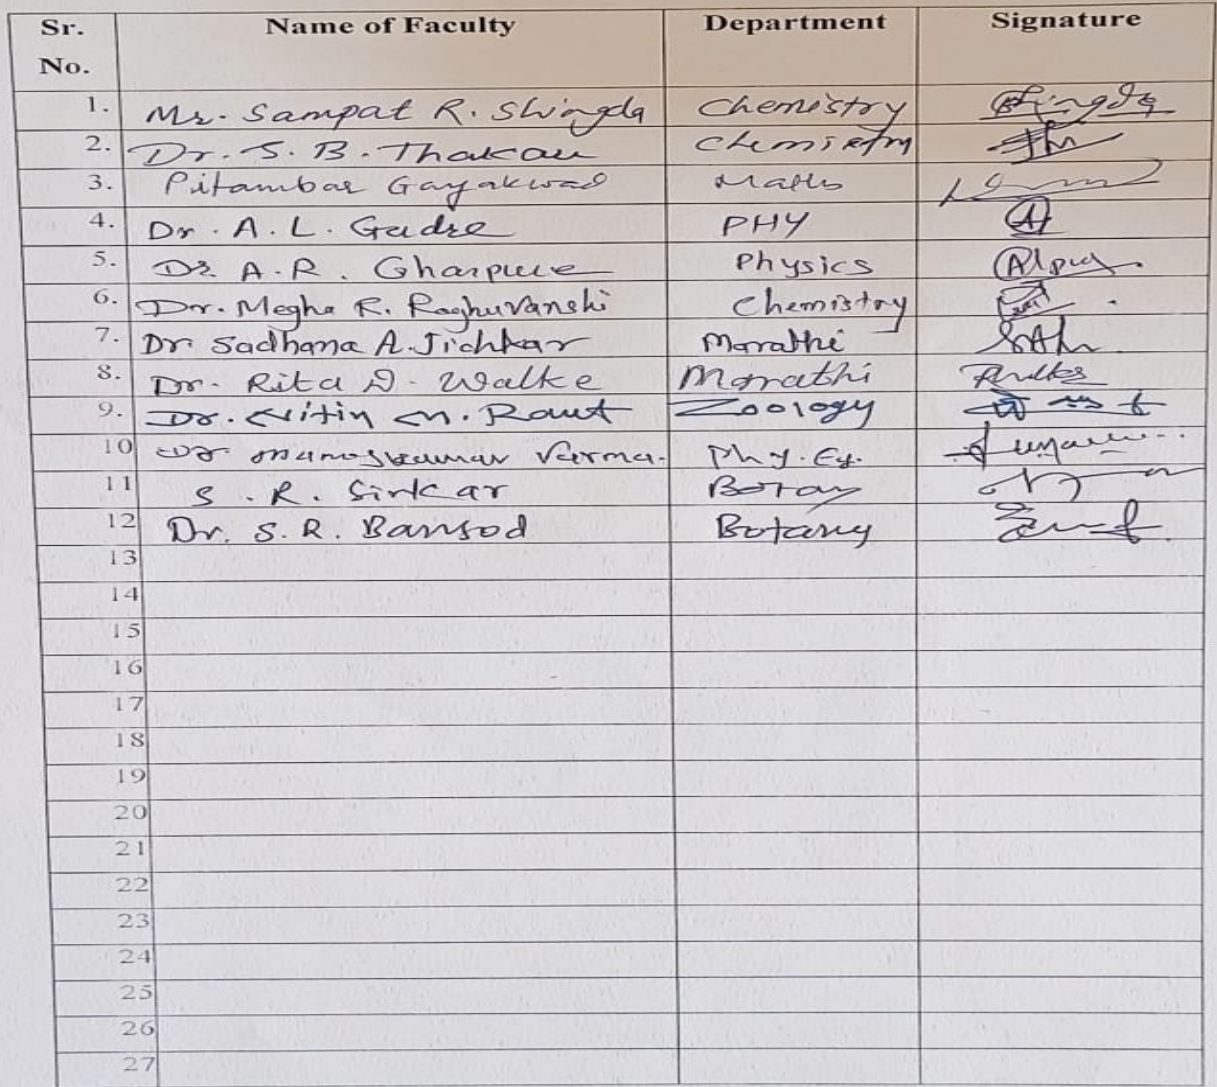 Sr. No. Name of Faculty Department Signature
1. Mr. Sampat R. Shingda Chemistry
2. Dr. S. B. Thakare Chemistry
3. Pitambar Gayakwad Maths
4. Dr. A. L. Gadre PHY
5. Dr. A. R. Gharpure Physics
6. Dr. Megha R. Raghuvanshi Chemistry
7. Dr Sadhana A. Jichkar Marathi
8. Dr. Rita D. Walke Marathi
9. Dr. Nitin N. Raut Zoology
10 Dr. Manojkumar Varma. Phy. Ed.
11 S. R. Sirkar Botany
12 Dr. S. R. Bansod Botany
13
14
15
16
17
18
19
20
21
22
23
24
25
26
27